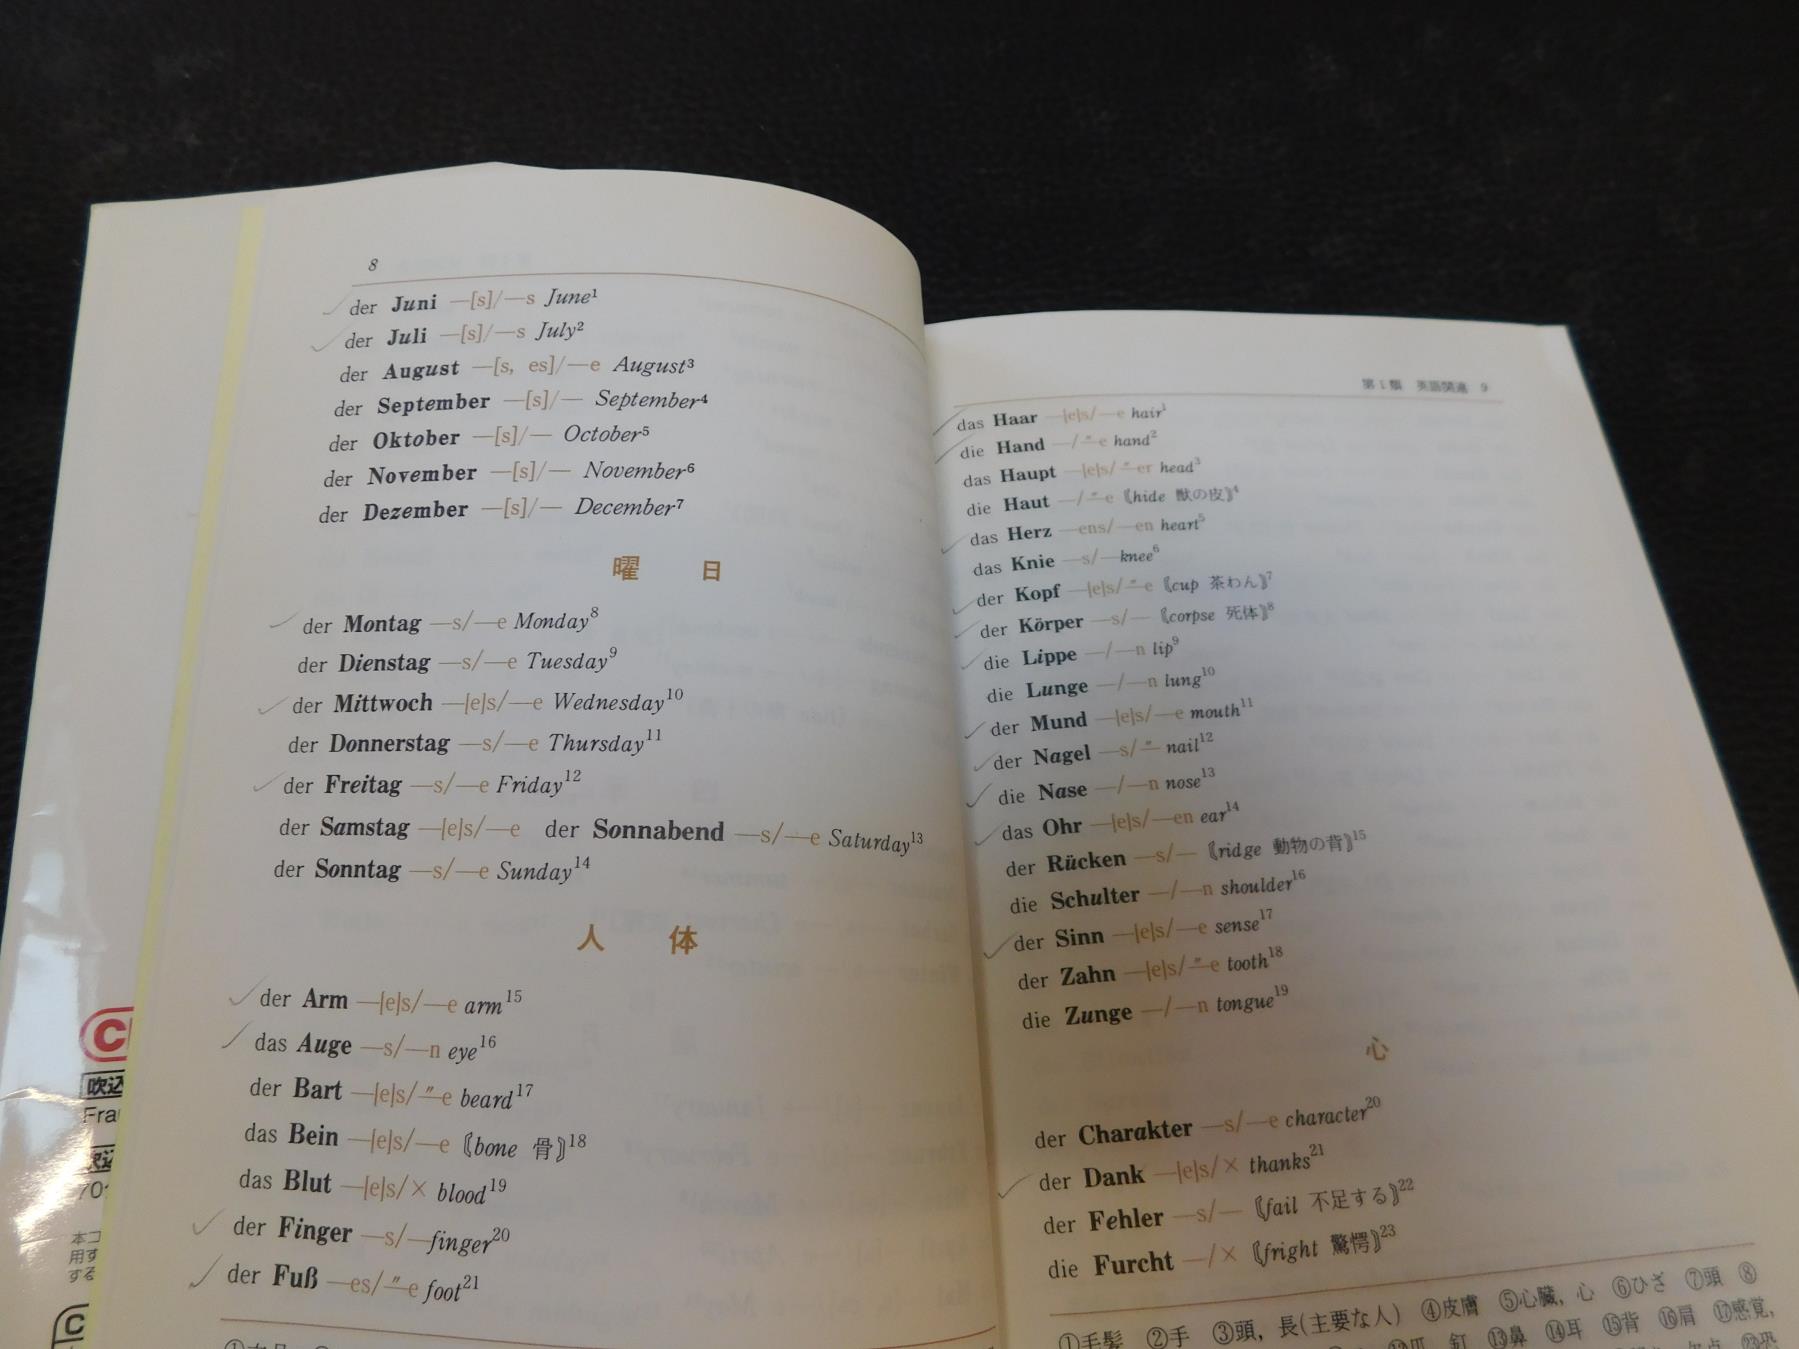 8
der Juni —[s]/—s June¹
der Juli —[s]/—s July²
der August —[s, es]/—e August³
der September —[s]/— September⁴
der Oktober —[s]/— October⁵
der November —[s]/— November⁶
der Dezember —[s]/— December⁷
曜 日
der Montag —s/—e Monday⁸
der Dienstag —s/—e Tuesday⁹
der Mittwoch —[e]s/—e Wednesday¹⁰
der Donnerstag —s/—e Thursday¹¹
der Freitag —s/—e Friday¹²
der Samstag —[e]s/—e der Sonnabend —s/—e Saturday¹³
der Sonntag —s/—e Sunday¹⁴
人 体
der Arm —[e]s/—e arm¹⁵
das Auge —s/—n eye¹⁶
der Bart —[e]s/⸚e beard¹⁷
das Bein —[e]s/—e 《bone 骨》¹⁸
das Blut —[e]s/× blood¹⁹
der Finger —s/—finger²⁰
der Fuß —es/⸚e foot²¹
C
吹込
Fra
吹込
70
本コ
用す
する
C
第1類 英語関連 9
das Haar —[e]s/—e hair¹
die Hand —/⸚e hand²
das Haupt —[e]s/⸚er head³
die Haut —/⸚e 《hide 獣の皮》⁴
das Herz —ens/—en heart⁵
das Knie —s/—knee⁶
der Kopf —[e]s/⸚e 《cup 茶わん》⁷
der Körper —s/— 《corpse 死体》⁸
die Lippe —/—n lip⁹
die Lunge —/—n lung¹⁰
der Mund —[e]s/—e mouth¹¹
der Nagel —s/⸚ nail¹²
die Nase —/—n nose¹³
das Ohr —[e]s/—en ear¹⁴
der Rücken —s/— 《ridge 動物の背》¹⁵
die Schulter —/—n shoulder¹⁶
der Sinn —[e]s/—e sense¹⁷
der Zahn —[e]s/⸚e tooth¹⁸
die Zunge —/—n tongue¹⁹
心
der Charakter —s/—e character²⁰
der Dank —[e]s/× thanks²¹
der Fehler —s/— 《fail 不足する》²²
die Furcht —/× 《fright 驚愕》²³
①毛髪 ②手 ③頭，長(主要な人) ④皮膚 ⑤心臓，心 ⑥ひざ ⑦頭 ⑧
釘 ⑬鼻 ⑭耳 ⑮背 ⑯肩 ⑰感覚，